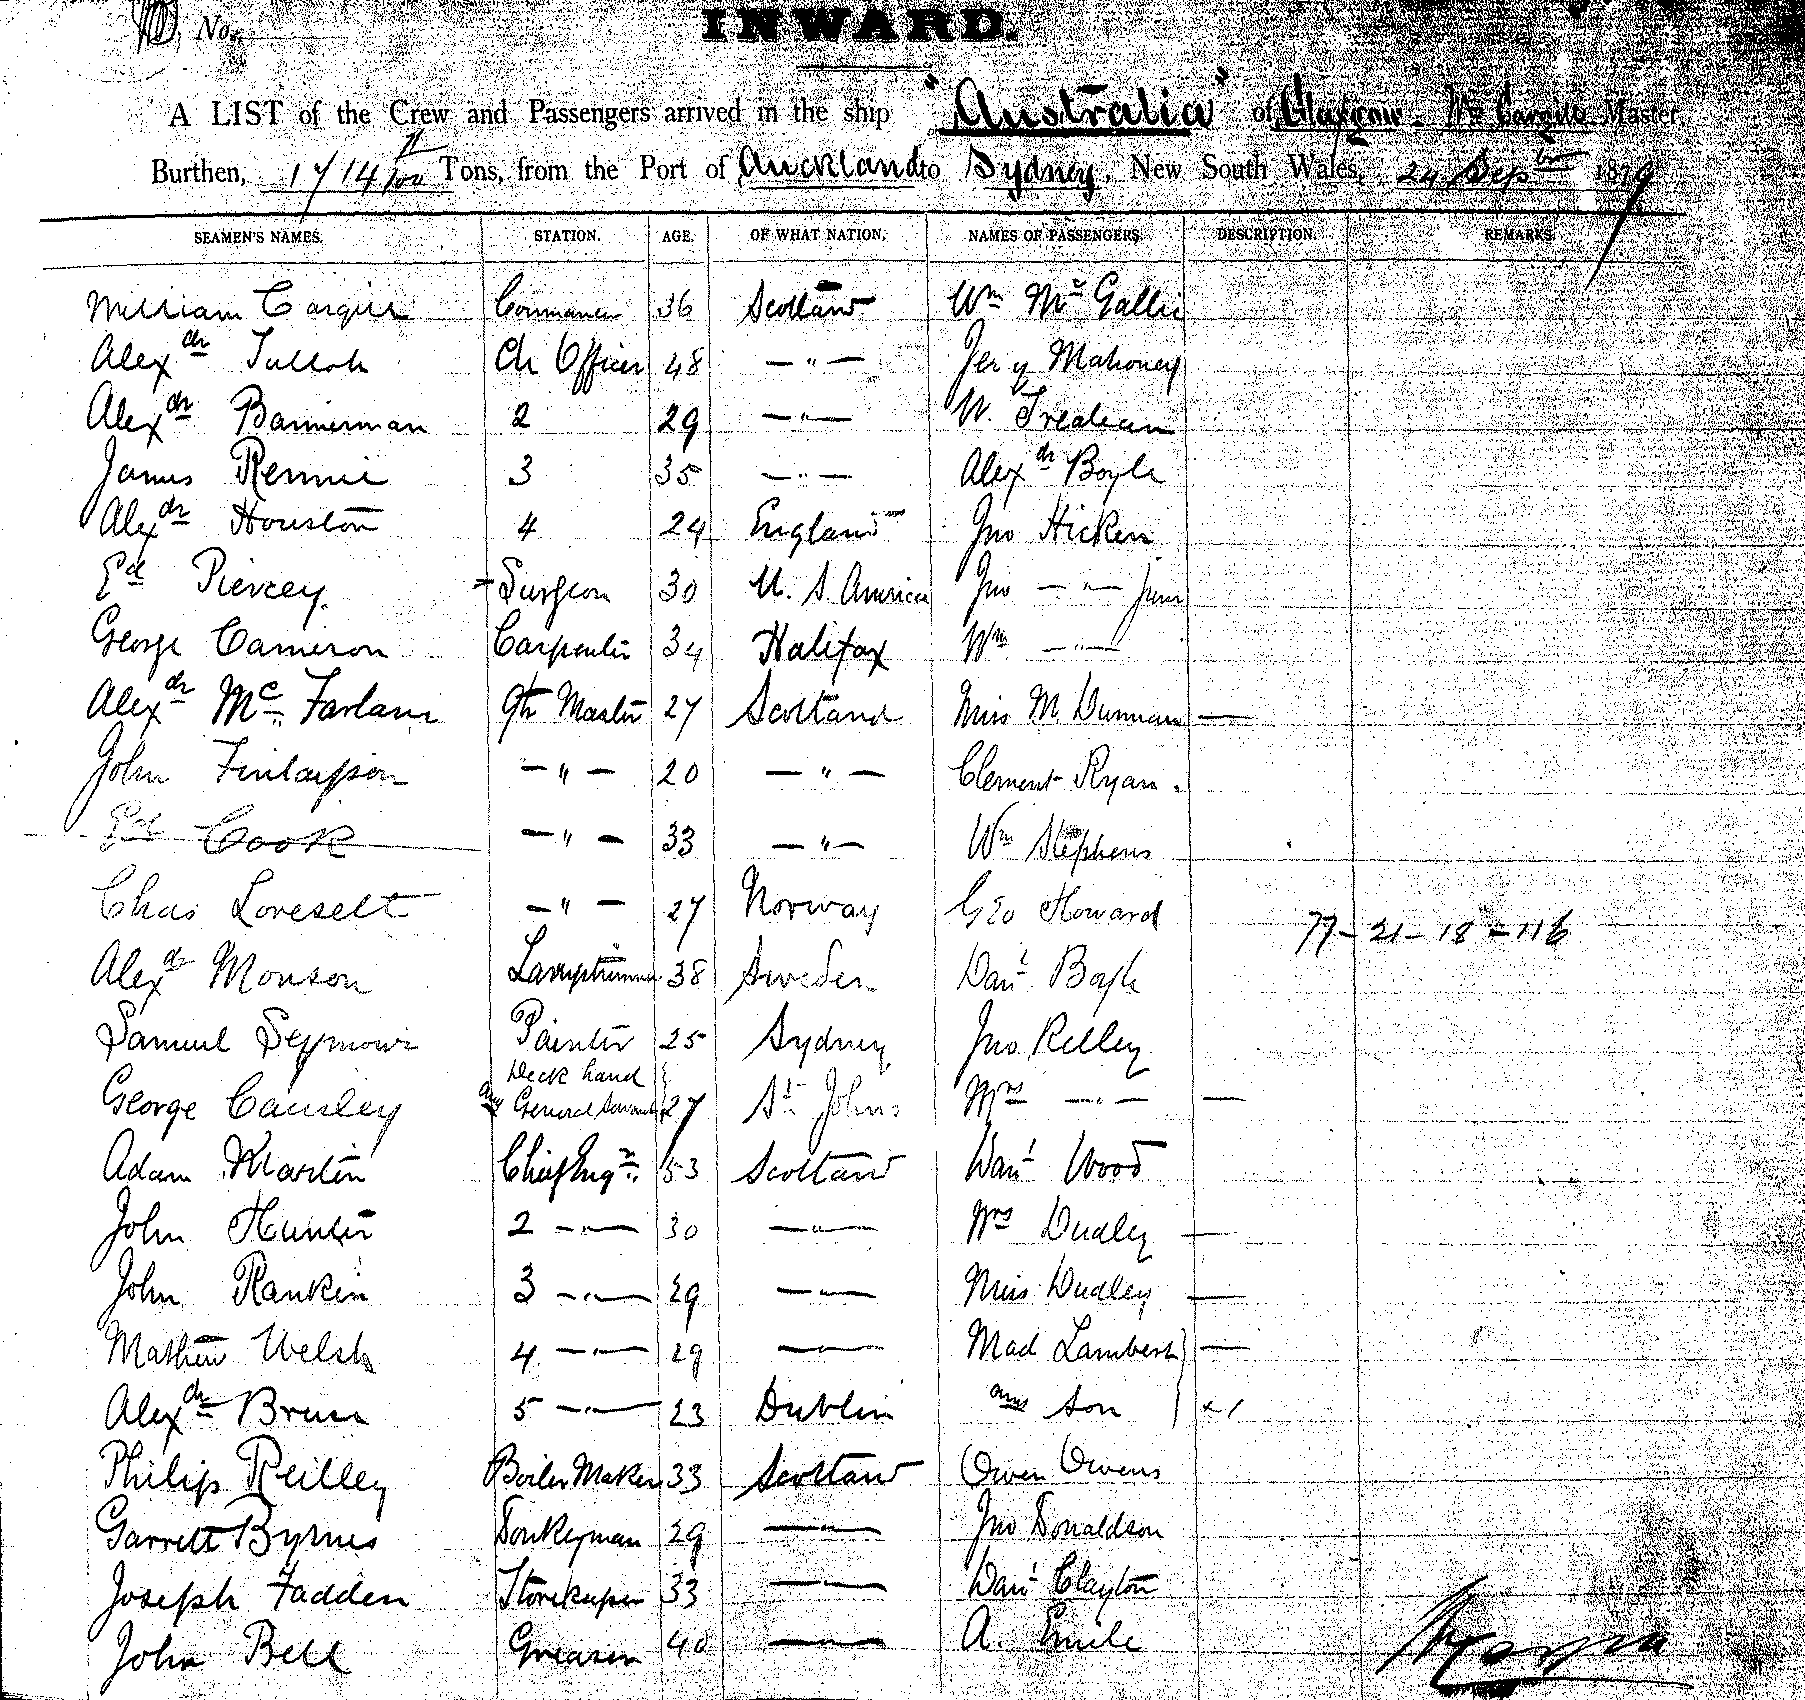 No.
INWARD.
A LIST of the Crew and Passengers arrived in the ship "Australia" of Glasgow. Wm Cargill Master,
Burthen, 1714 /100 Tons, from the Port of Auckland to Sydney, New South Wales, 24 Sepber 1879
SEAMEN'S NAMES. STATION. AGE. OF WHAT NATION. NAMES OF PASSENGERS. DESCRIPTION. REMARKS.
William Cargill Commander 36 Scotland Wm Mc Gallie
Alexdr Tulloh Ch Officer 48 — " — Jery Mahoney
Alexdr Bannerman 2 29 — " — W.
James Rennie 3 35 — " — Alexdr Boyle
Alexdr Houston 4 24 England Jno Hicken
Ed Piercey. Surgeon 30 U. S. America Jno — " — Junr
George Cameron Carpenter 34 Halifax Wm — " —
Alexdr Mc Farlane Qtr Master 27 Scotland Miss M Dunman —
John Finlayson — " — 20 — " — Clement Ryan.
Ed Cook — " — 33 — " — Wm Stephens
Chas Loveselt — " — 27 Norway Geo Howard
77 - 21 - 18 - 116
Alexdr Monson Lamptrimmer 38 Sweden Danl Boyle
Samuel Seymour Painter 25 Sydney Jno Kelley
George Causley Deck hand and General Servant 27 St Johns Mrs — " — —
Adam Martin Chief Engr. 53 Scotland Danl Wood
John Hunter 2 — " — 30 — " — Mrs Dudley —
John Rankin 3 — " — 29 — " — Miss Dudley —
Mathew Welsh 4 — " — 29 — " — Mad Lambert —
Alexdr Bruce 5 — " — 23 Dublin and son x 1
Philip Reilley Boiler Maker 33 Scotland Owen Owens
Garrett Byrnes Donkeyman 29 — " — Jno Donaldson
Joseph Fadden Storekeeper 33 — " — Danl Clayton
John Bell Greaser 40 — " — A. Emile